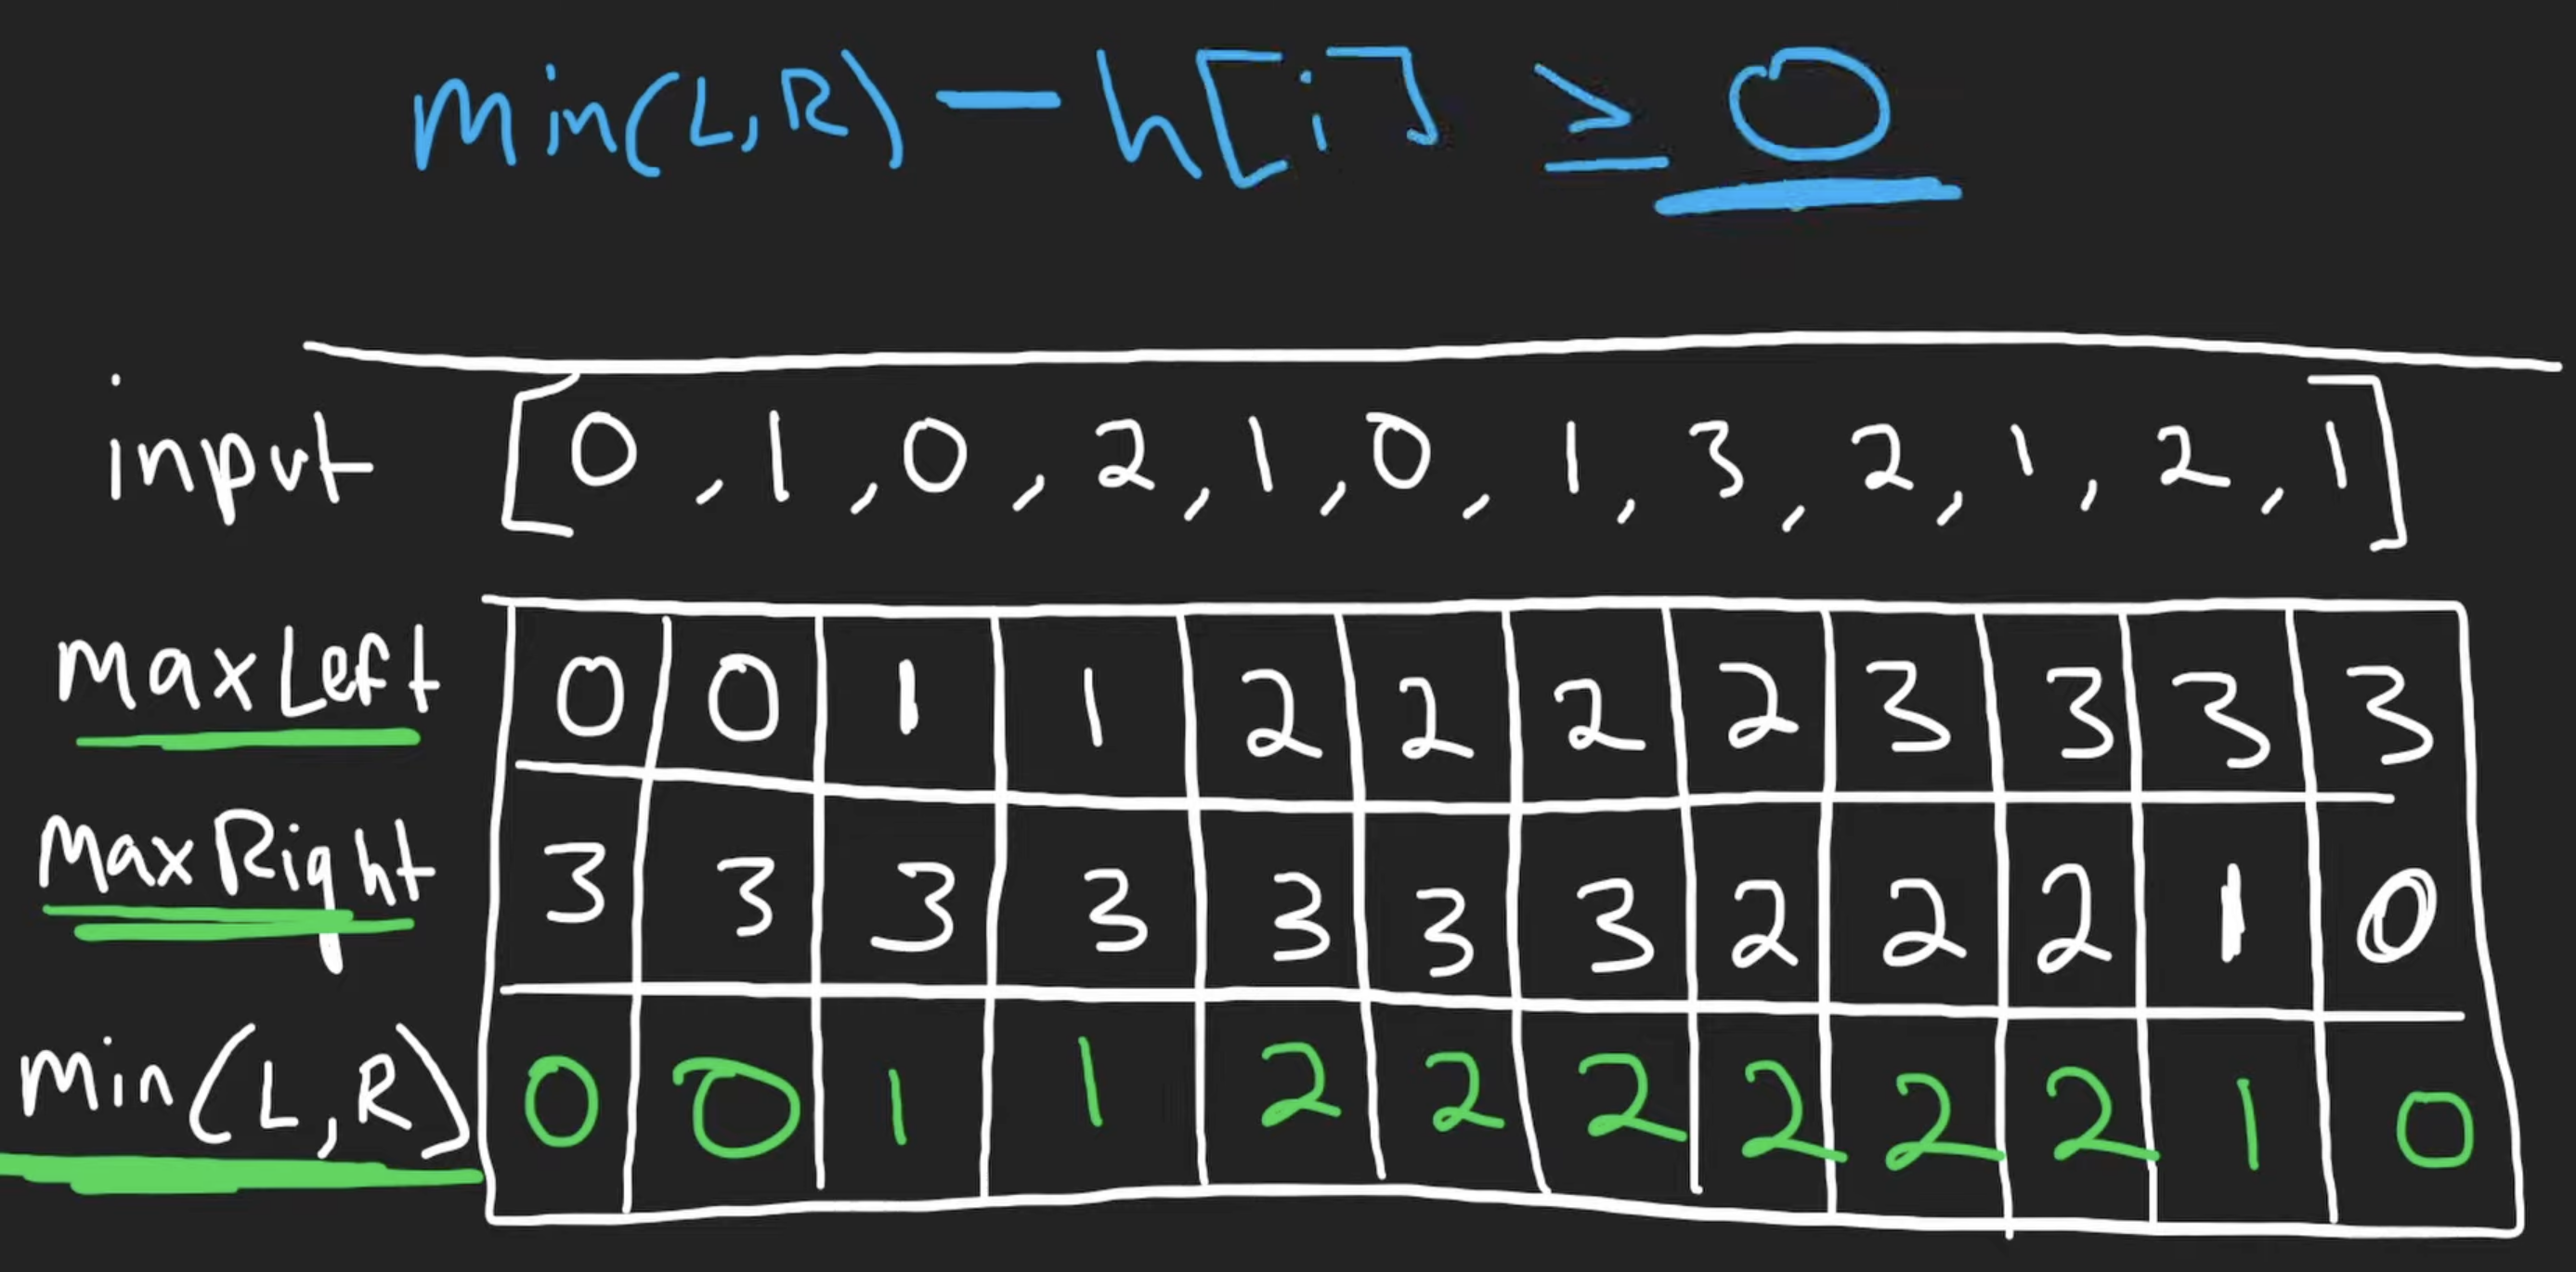 min(L,R) - h[i] ≥ 0
input [0,1,0,2,1,0,1,3,2,1,2,1]
maxLeft 0 0 1 1 2 2 2 2 3 3 3 3
maxRight 3 3 3 3 3 3 3 2 2 2 1 0
min(L,R) 0 0 1 1 2 2 2 2 2 2 1 0